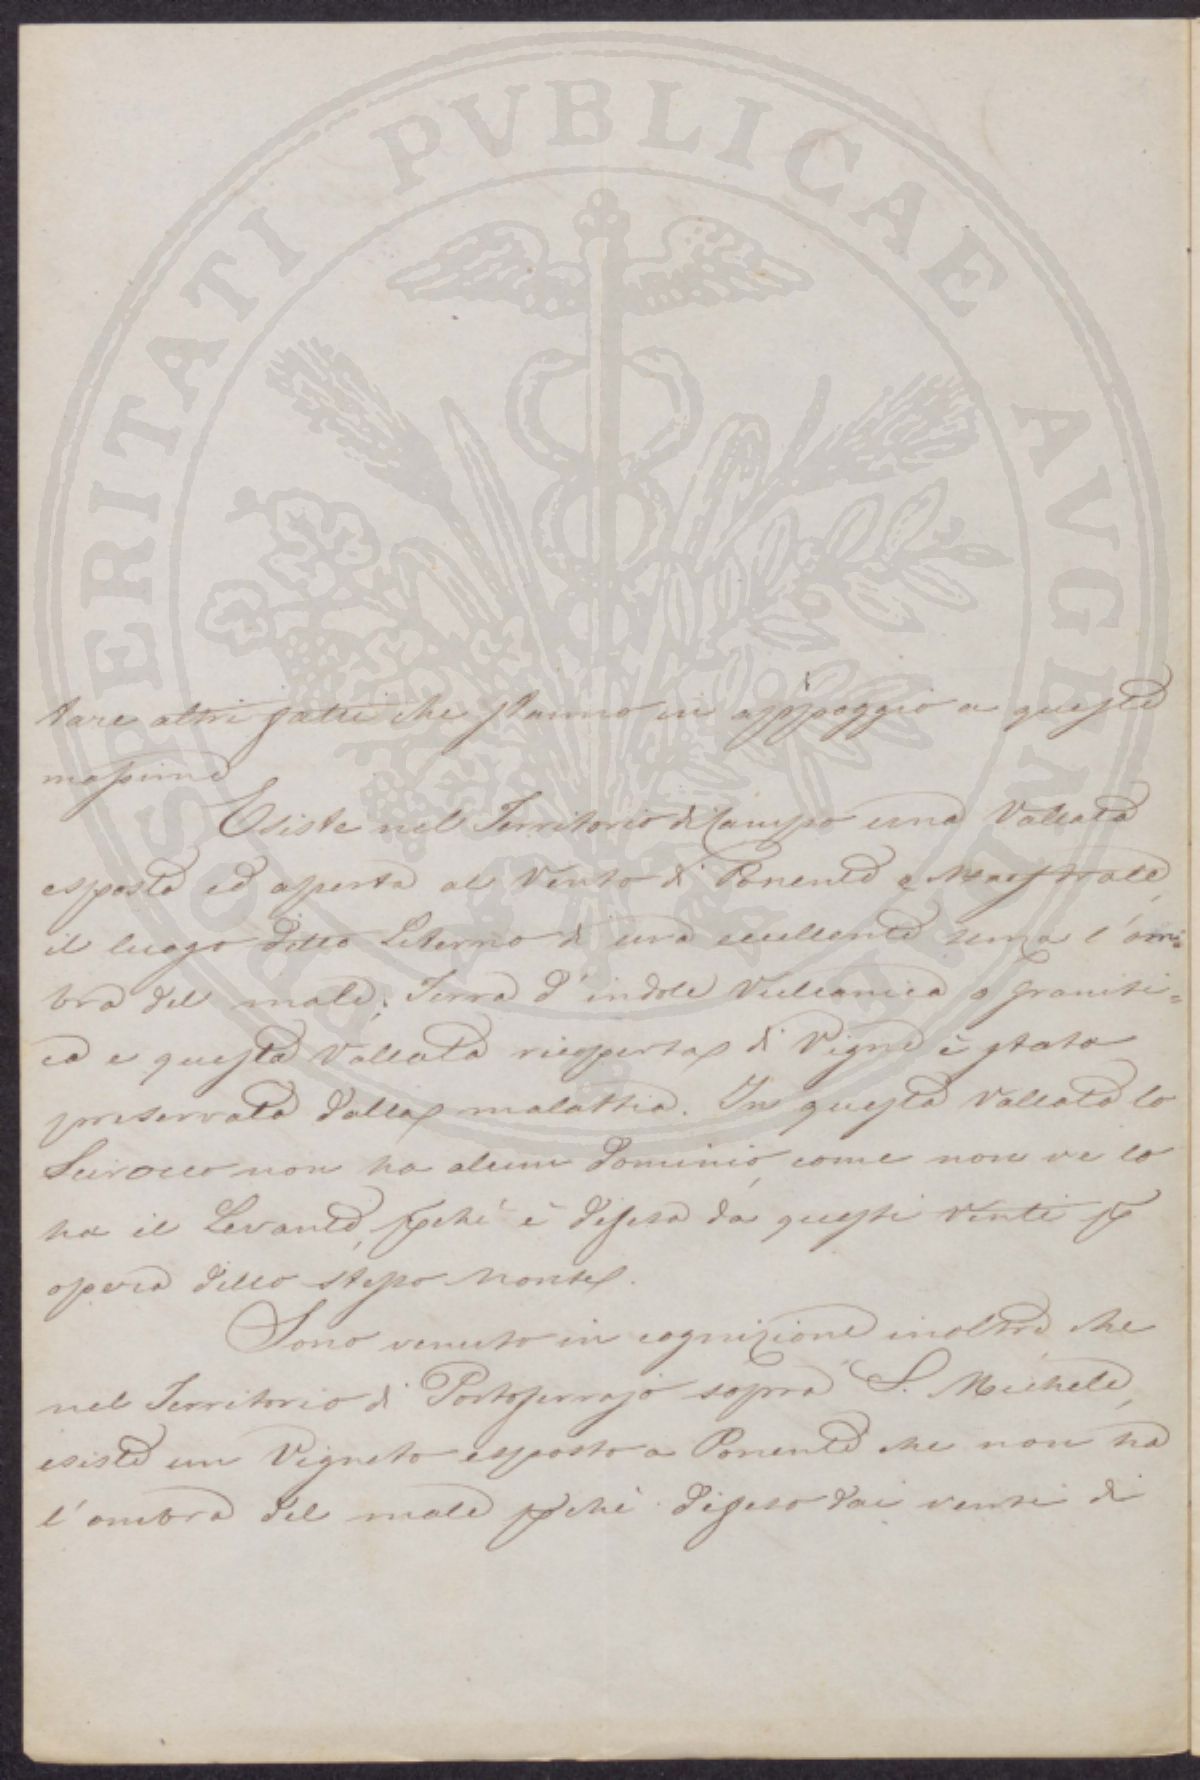 PROSPERITATI PVBLICAE AVGENDAE
tare altri fatti che stanno in appoggio a questa
massima
Esiste nel Territorio di Campo una Vallata
esposta ed aperta al Vento di Ponente e Maestrale,
il luogo detto Literno d'uva eccellente senza l'om=
bra del male; Terra d'indole Vulcanica o graniti=
ca e questa Vallata ricoperta di Vigne è stata
preservata dalla malattia. In questa Vallata lo
Scirocco non ha alcun dominio, come non ve lo
ha il Levante, pchè è difesa da questi venti p
opera dello stesso Monte.
Sono venuto in cognizione inoltre, che
nel Territorio di Portoferrajo sopra S. Michele,
esiste un Vigneto esposto a Ponente che non ha
l'ombra del male pchè difeso dai venti di